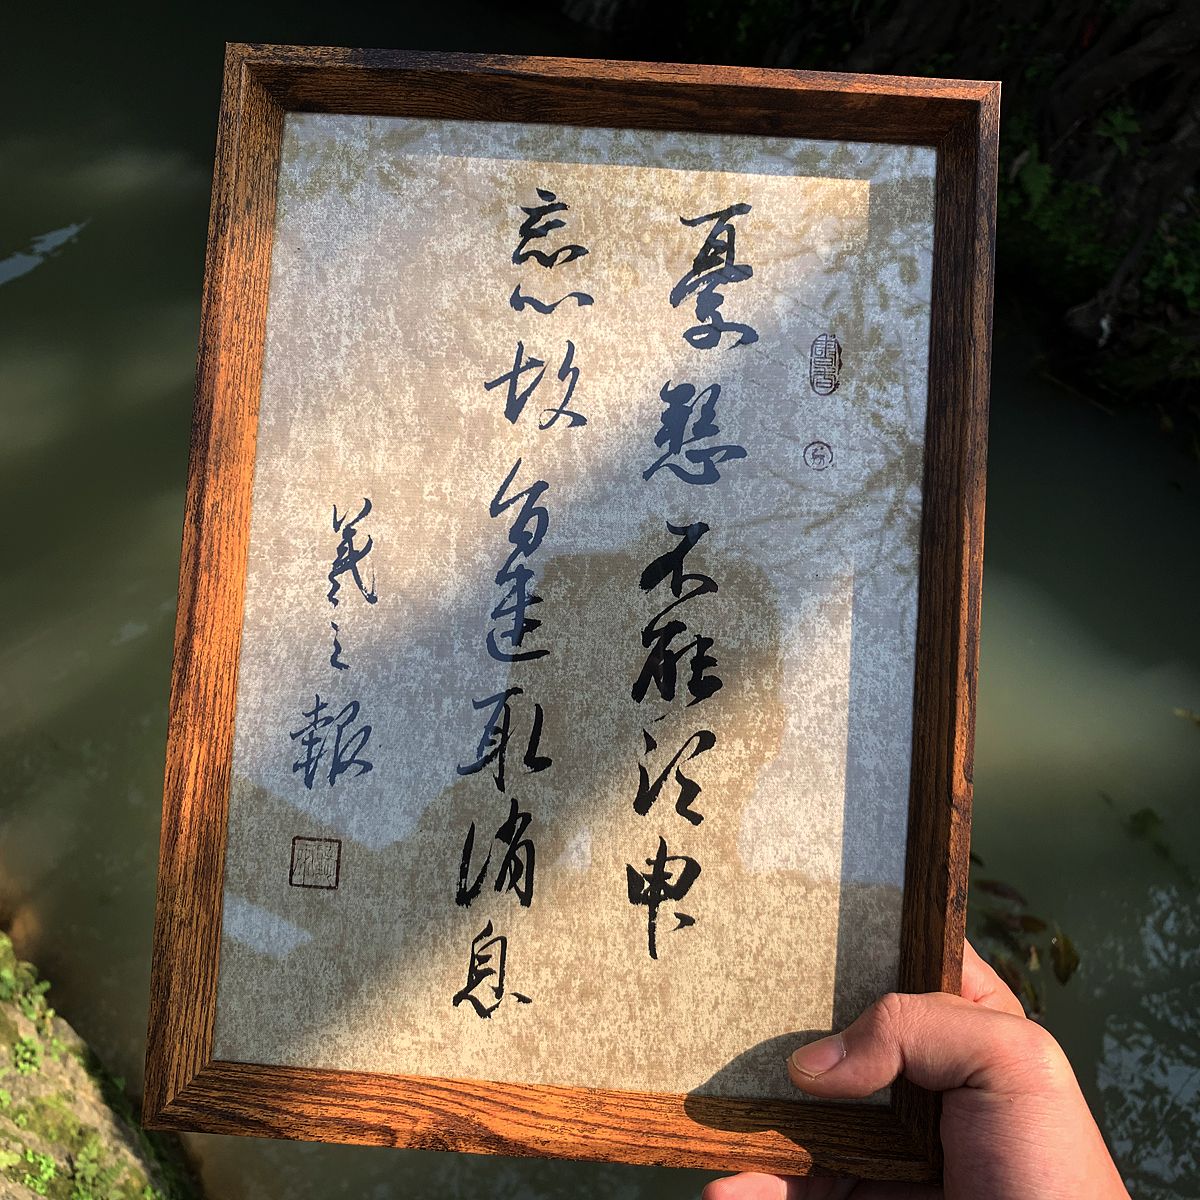 憂懸不能須臾
忘心故旨遣取消息
羲之報